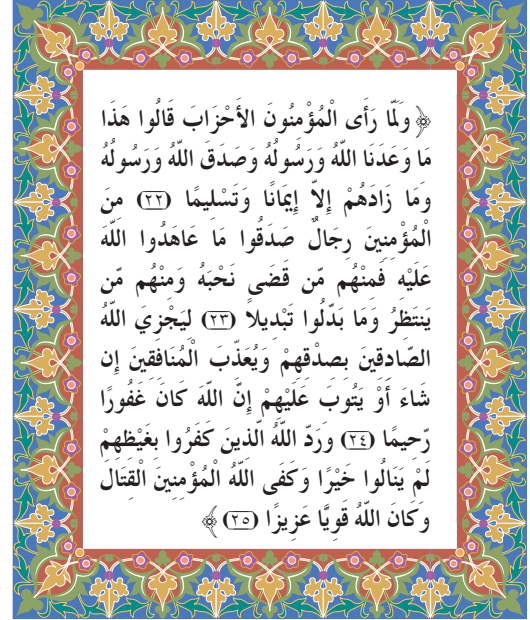 ﴿ وَلَمَّا رَأَى الْمُؤْمِنُونَ الأَحْزَابَ قَالُوا هَذَا
مَا وَعَدَنَا اللَّهُ وَرَسُولُهُ وَصَدَقَ اللَّهُ وَرَسُولُهُ
وَمَا زَادَهُمْ إِلاَّ إِيمَانًا وَتَسْلِيمًا (٢٢) مِنَ
الْمُؤْمِنِينَ رِجَالٌ صَدَقُوا مَا عَاهَدُوا اللَّهَ
عَلَيْهِ فَمِنْهُم مَّن قَضَى نَحْبَهُ وَمِنْهُم مَّن
يَنتَظِرُ وَمَا بَدَّلُوا تَبْدِيلاً (٢٣) لِيَجْزِيَ اللَّهُ
الصَّادِقِينَ بِصِدْقِهِمْ وَيُعَذِّبَ الْمُنَافِقِينَ إِن
شَاءَ أَوْ يَتُوبَ عَلَيْهِمْ إِنَّ اللَّهَ كَانَ غَفُورًا
رَّحِيمًا (٢٤) وَرَدَّ اللَّهُ الَّذِينَ كَفَرُوا بِغَيْظِهِمْ
لَمْ يَنَالُوا خَيْرًا وَكَفَى اللَّهُ الْمُؤْمِنِينَ الْقِتَالَ
وَكَانَ اللَّهُ قَوِيًّا عَزِيزًا (٢٥) ﴾